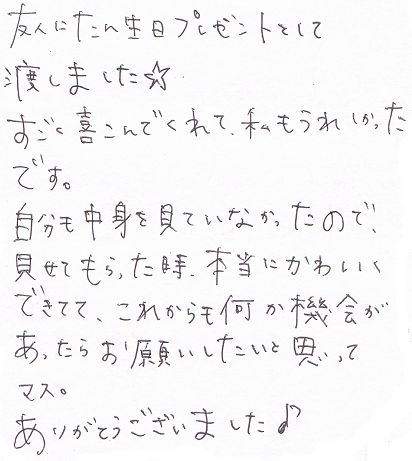 友人にたん生日プレゼントとして
渡しました☆
すごく喜こんでくれて、私もうれしかった
です。
自分も中身を見ていなかったので、
見せてもらった時、本当にかわいく
できてて、これからも何か機会が
あったらお願いしたいと思って
マス。
ありがとうございました♪